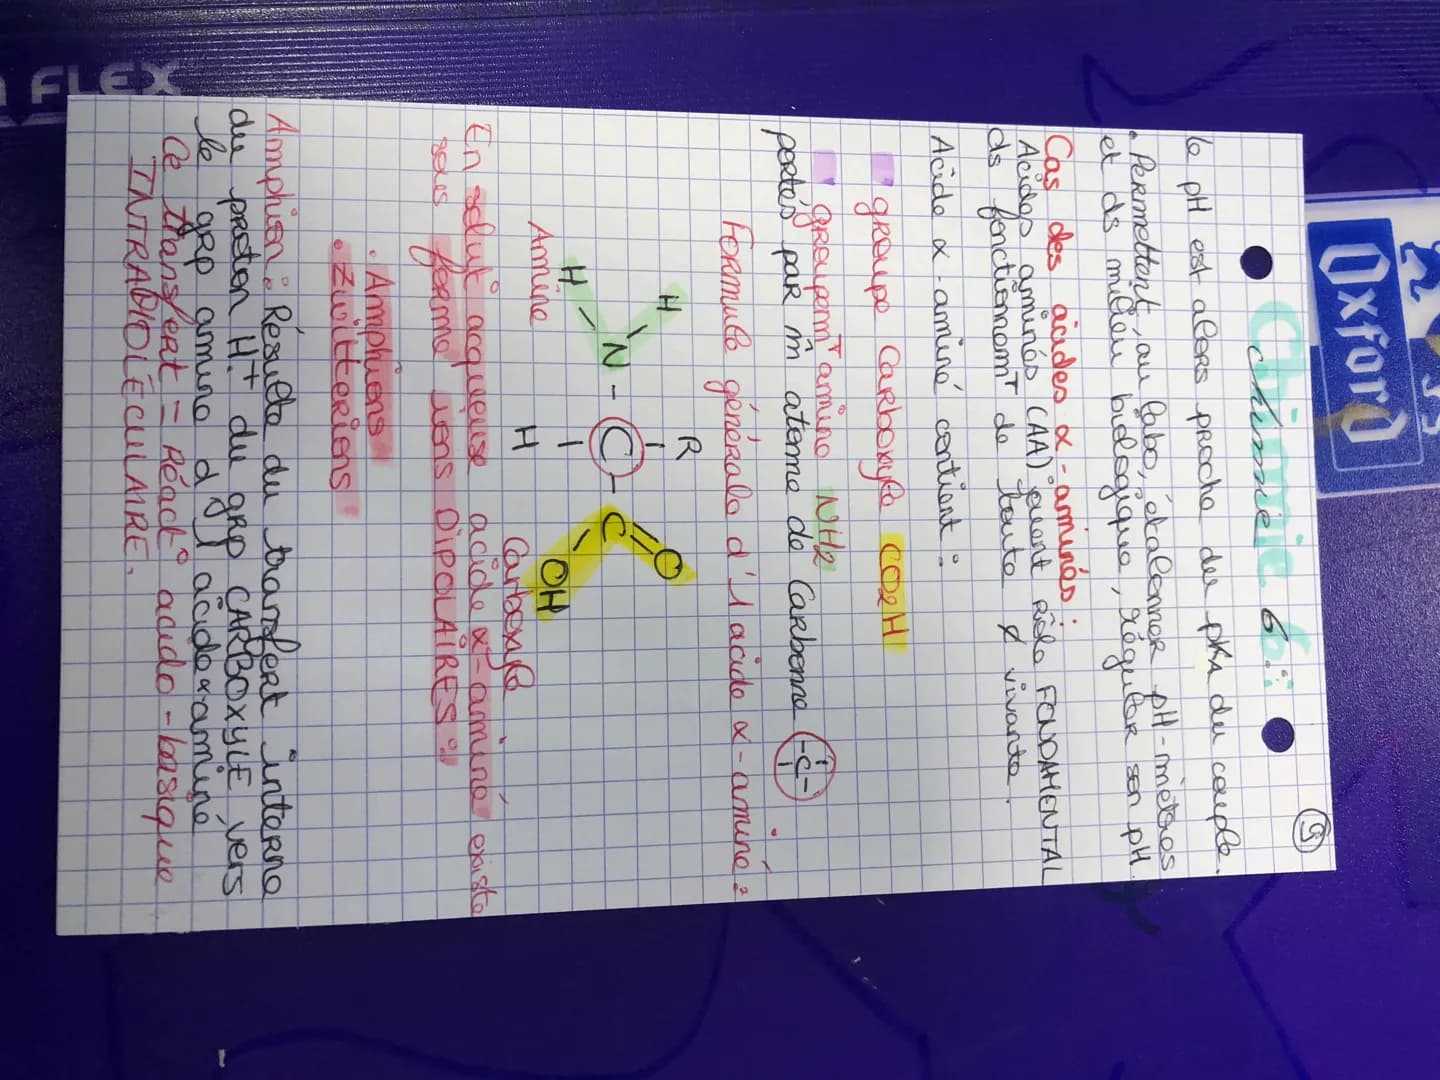 FLEX
Oxford
Chimie 6::
9
le pH est alors proche du pKA du couple.
• Permettent, au labo, étalonner pH-mètres
et ds milieu biologique, réguler son pH.
Cas des acides α-aminés:
Acides aminés (AA) jouent rôle FONDAMENTAL
ds fonctionnemT de toute vivante.
Acide α-aminé contient:
groupe carboxyle CO2H
groupemT amino NH2
portés par m̂ atome de Carbone -C-
Formule générale d'1 acide α-aminé:
H R O
N - C - C
H H OH
Amine Carboxyle
En soluT acqueuse acide α-aminé existe
sous forme ions DIPOLAIRES:
• Amphions
• Zwitterions
Amphion: Résulte du transfert interne
du proton H.+ du grp CARBOXYLE vers
le grp amino d'1 acide α-aminé
Ce transfert = Réact° acido-basique
INTRAMOLÉCULAIRE.